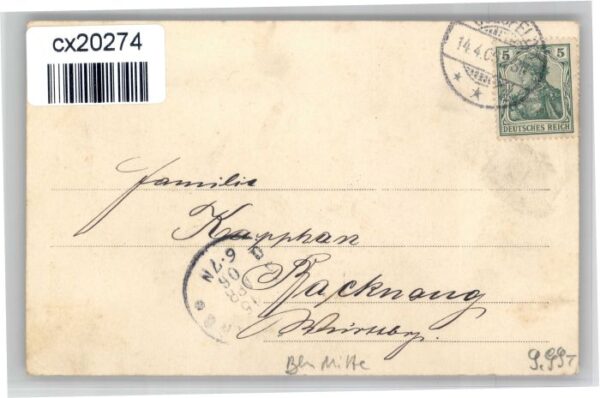 cx20274
14.4.0
5 5
DEUTSCHES REICH
Familie
Kapphan
Backnang
Württbg.
6-7N
Bln Mitte
9.99